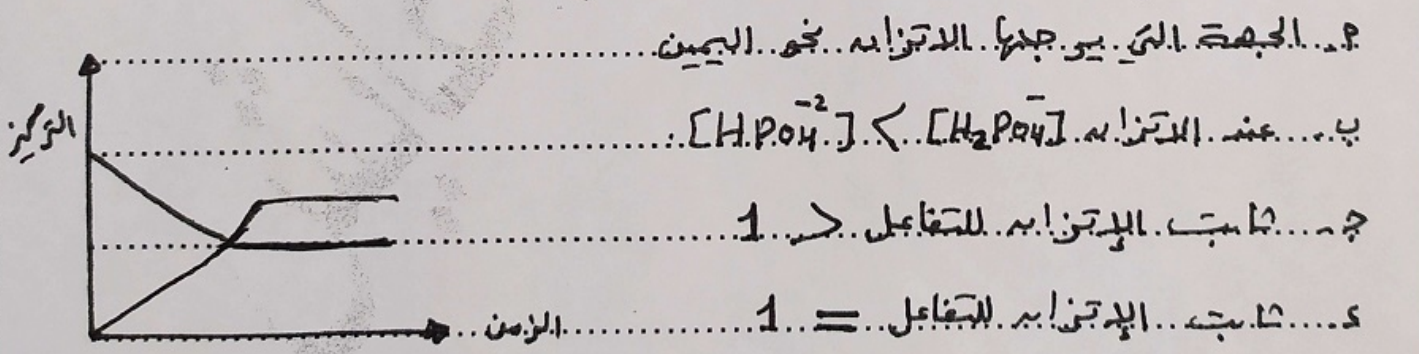 أ. الجهة التي يرجحها الاتزان نحو اليمين
التركيز
ب. عند الاتزان [H₂PO₄⁻] > [HPO₄⁻²]
جـ. ثابت الإتزان للتفاعل > 1
د. ثابت الإتزان للتفاعل = 1
الزمن